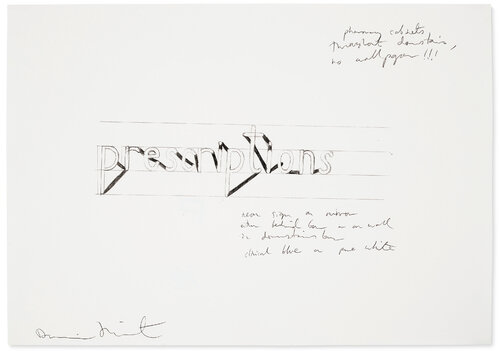 pharmacy cabinets
throughout downstairs,
no wallpaper!!!
prescriptions
neon sign on mirror
either behind bar or on wall
in downstairs bar
clinical blue or pure white
Damien Hirst